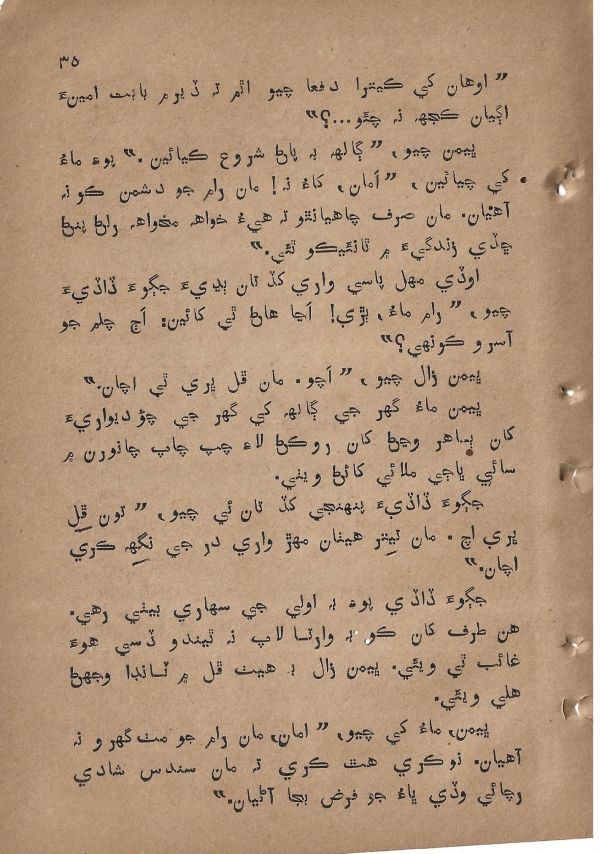 ٣٥
”اوهان کي ڪيترا دفعا چيو اٿم تہ ڏيرم بابت امينءَ
اڳيان ڪجهہ نہ چئو...؟“
ڀيمن چيو، ”ڳالهہ بہ پاڻ شروع ڪيائين.“ پوءِ ماءُ
کي چيائين، ”اَمان، کاءُ نہ! مان رام جو دشمن ڪونہ
آهيان. مان صرف چاهيانٿو تہ هيءُ خواهہ مخواهہ رلڻ پنڻ
ڇڏي زندگيءَ ۾ ٿانئيڪو ٿئي.“
اوڏي مهل پاسي واري کڏ تان ٻڍيءَ جڳوءَ ڏاڏيءَ
چيو، ”رام ماءُ، ٻڙي! اَڃا هاڻ ٿي کائين؛ اَڄ چلم جو
آسرو ڪونهي؟“
ڀيمن زال چيو، ”اَچو. مان ڦل ڀري ٿي اچان.“
ڀيمن ماءُ گهر جي ڳالهہ کي گهر جي چؤديواريءَ
کان ٻاهر وڃڻ کان روڪڻ لاءِ چپ چاپ چانورن ۾
سائي ڀاڄي ملائي کائڻ ويٺي.
جڳوءَ ڏاڏيءَ پنهنجي کڏ تان ئي چيو، ”تون ڦلِ
ڀري اچ. مان تيِتر هيٺان مهڙ واري در جي نگهہ ڪري
اچان.“
جڳوءَ ڏاڏي پوءِ بہ اولي جي سهاري بيٺي رهي.
هن طرف کان ڪو بہ وارتالاپ نہ ٿيندو ڏسي هوءَ
غائب ٿي ويئي. ڀيمن زال بہ هيٺ ڦل ۾ ٽانڊا وجهڻ
هلي ويئي.
ڀيمن، ماءُ کي چيو، ”امان، مان رام جو مٽ گهرو نہ
آهيان. نوڪري هٿ ڪري تہ مان سندس شادي
رچائي وڏي ڀاءُ جو فرض بجا آڻيان.“